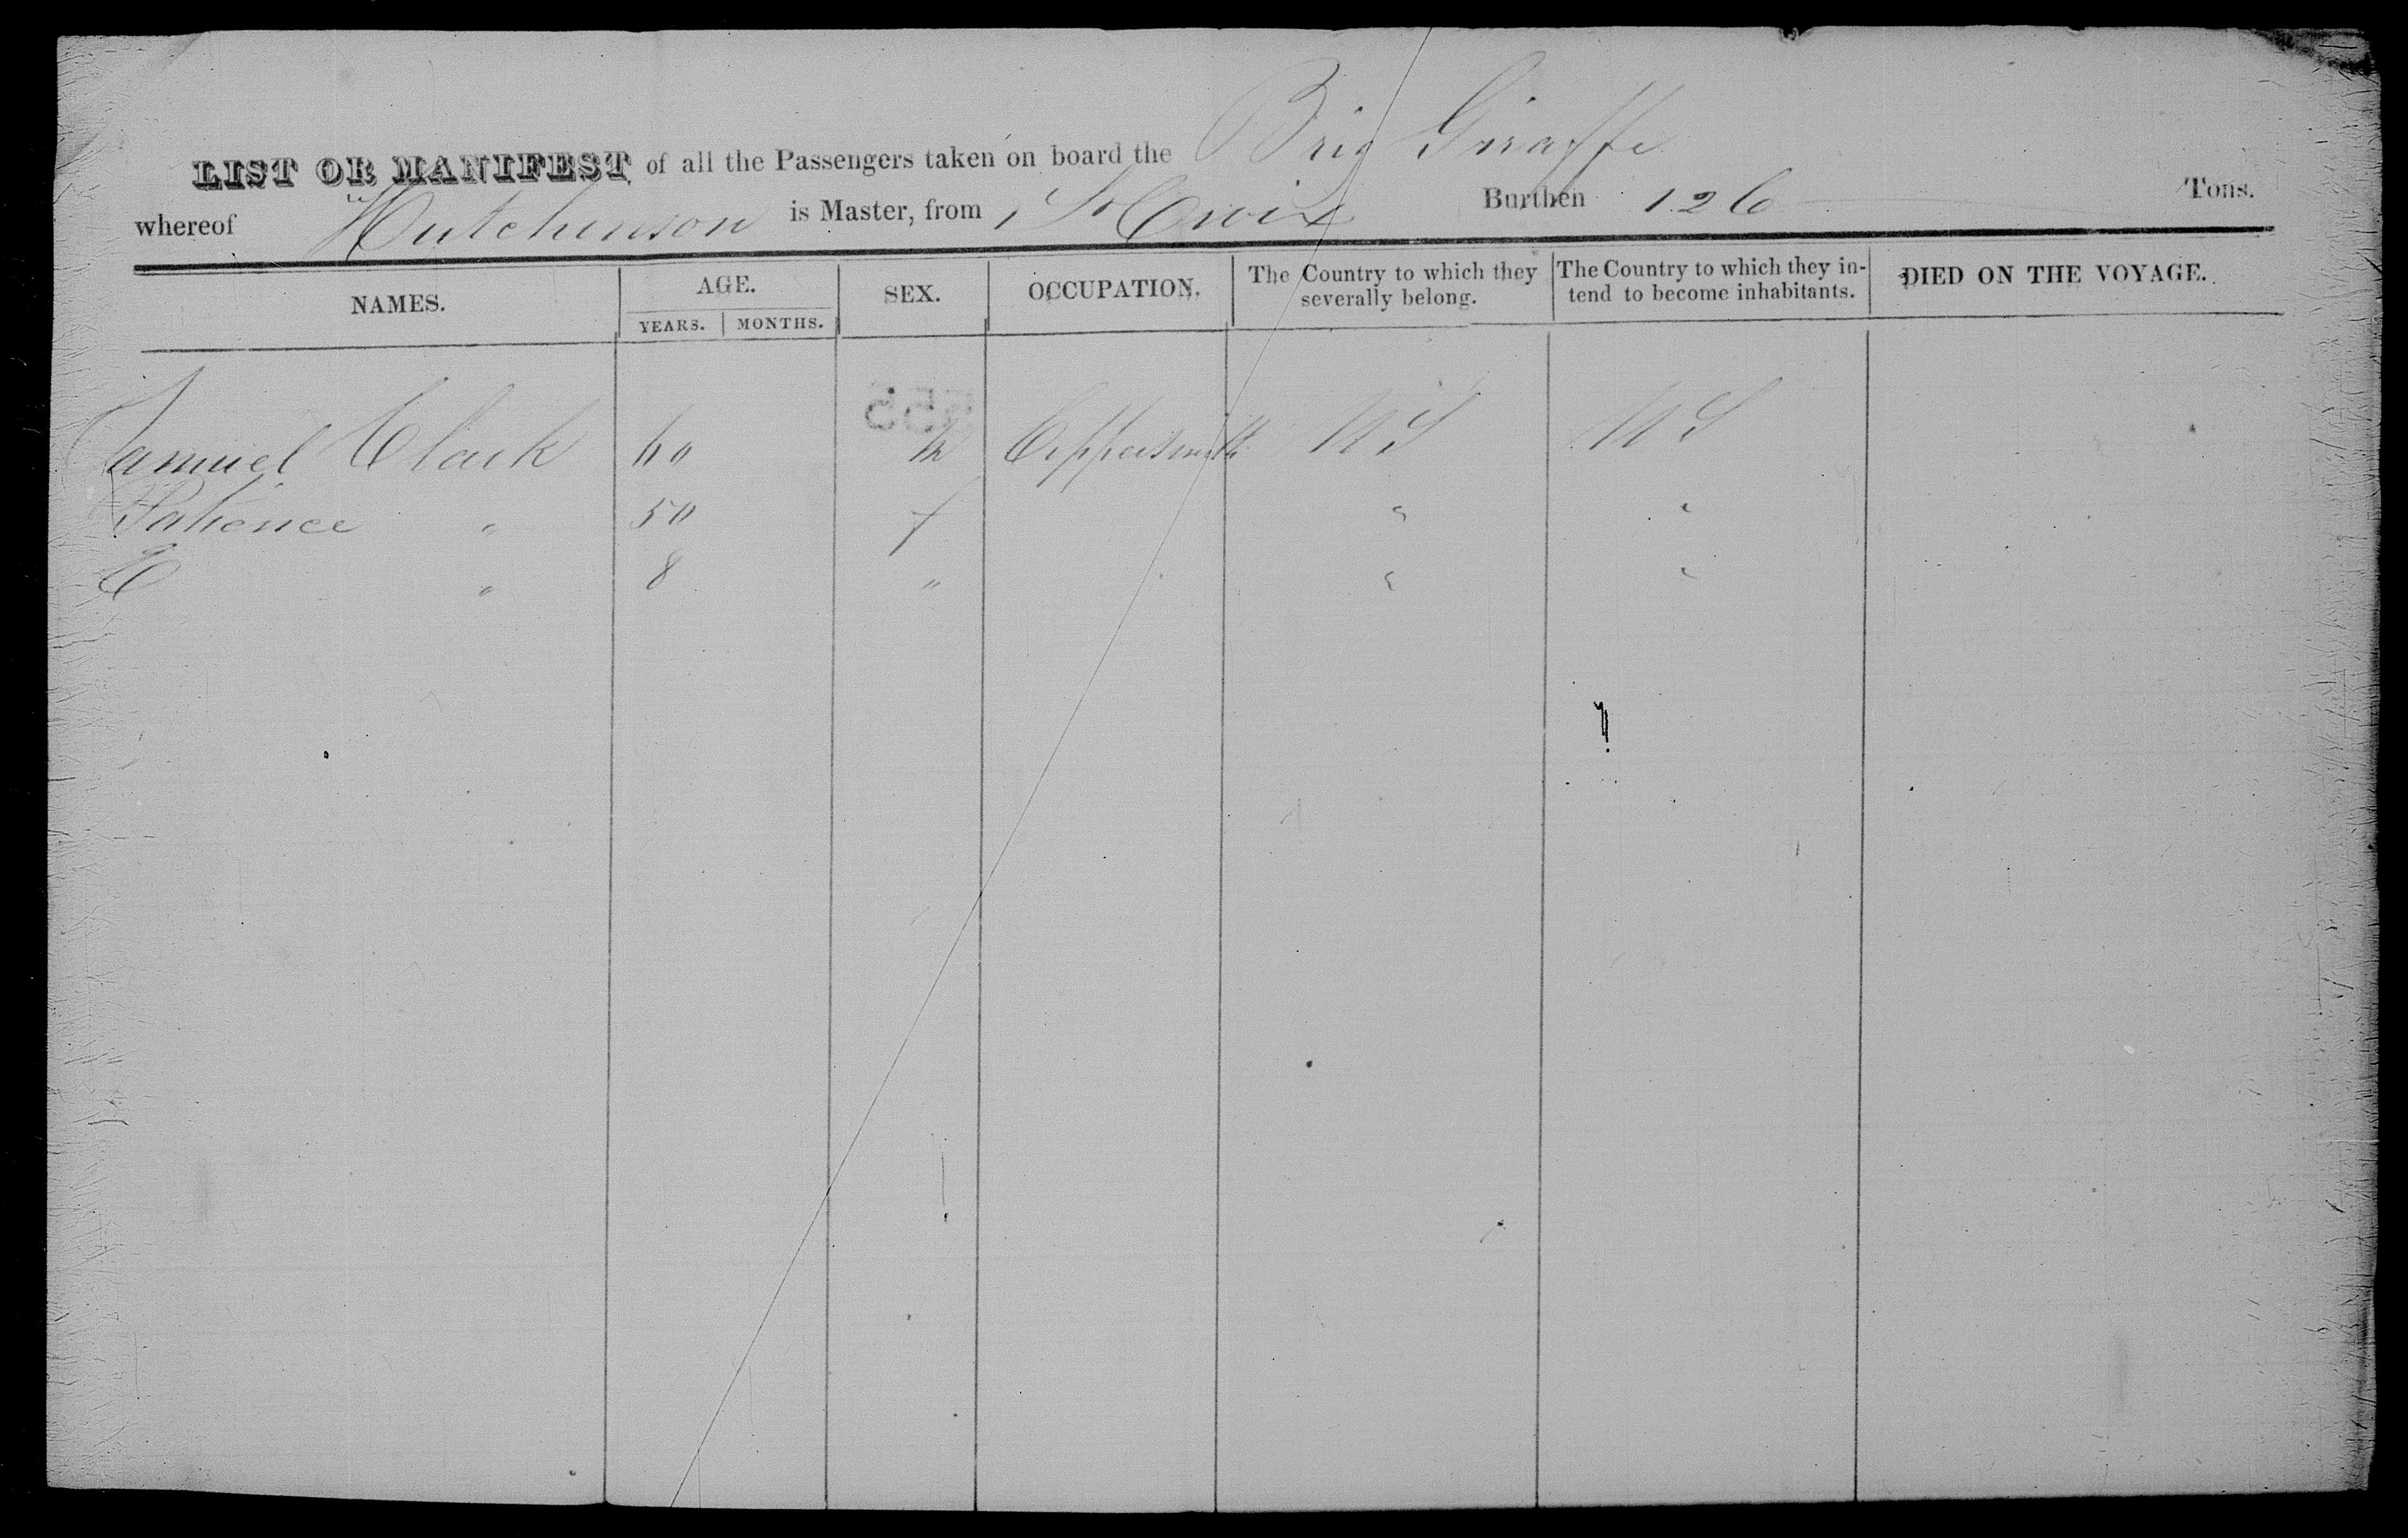 LIST OR MANIFEST of all the Passengers taken on board the Brig Giraffe
whereof Hutchinson is Master, from St Croix Burthen 126 Tons.
NAMES. AGE. YEARS. MONTHS. SEX. OCCUPATION. The Country to which they severally belong. The Country to which they intend to become inhabitants. DIED ON THE VOYAGE.
Samuel Clark 60 m Coppersmith US US
Patience " 50 f " "
E " 8 " " "